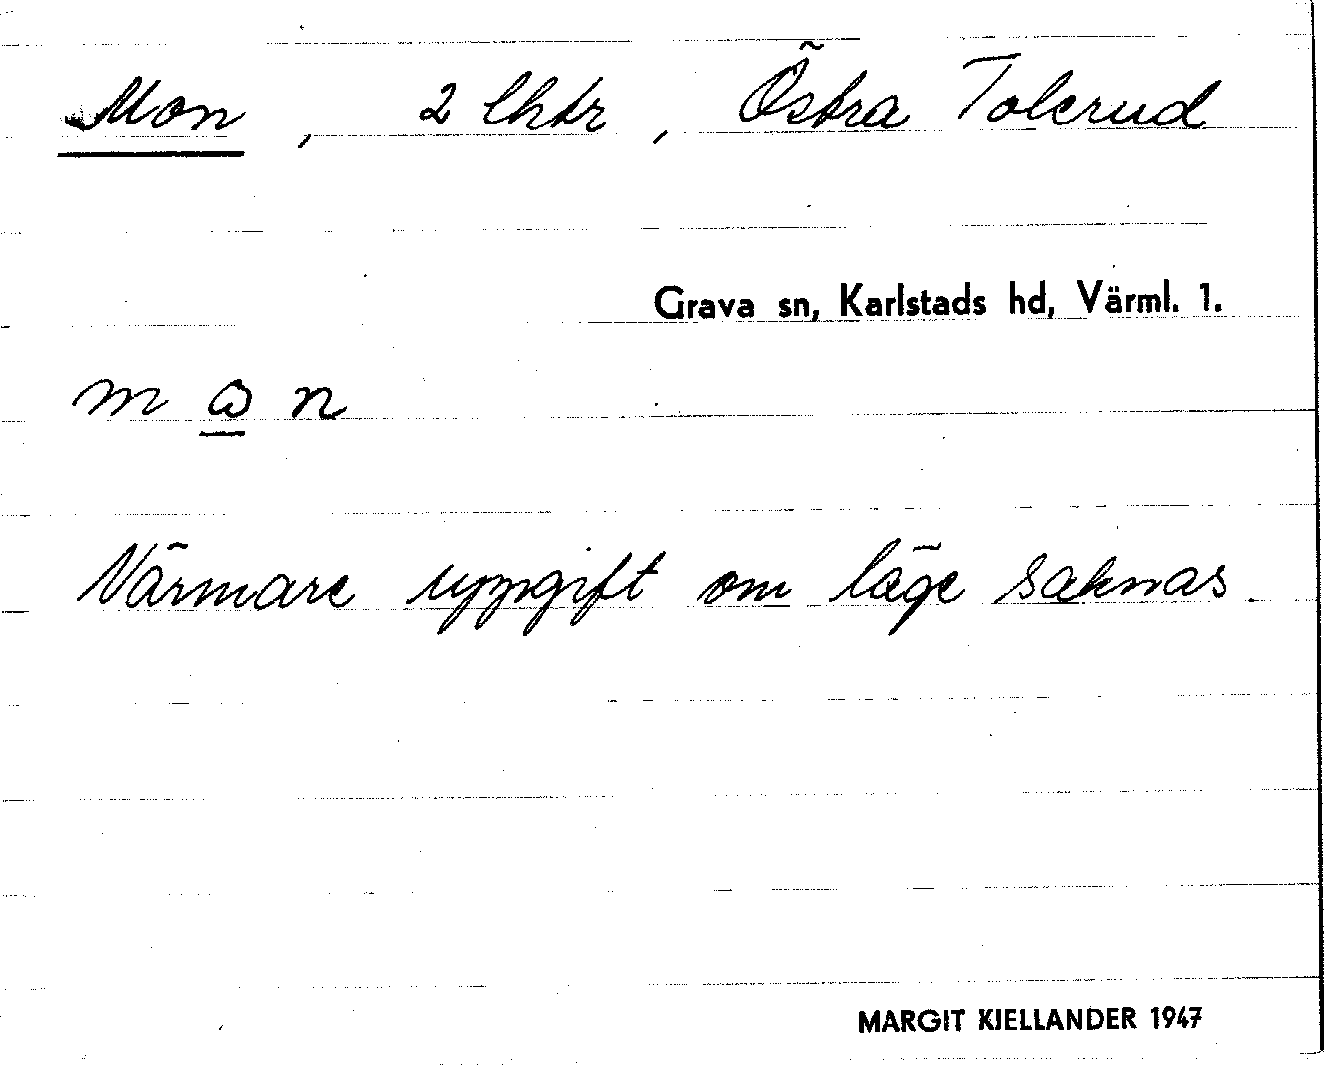 Mon, 2 lhtr, Östra Tolerud
Grava sn, Karlstads hd, Värml. 1.
m ω n
Närmare uppgift om läge saknas.
MARGIT KJELLANDER 1947